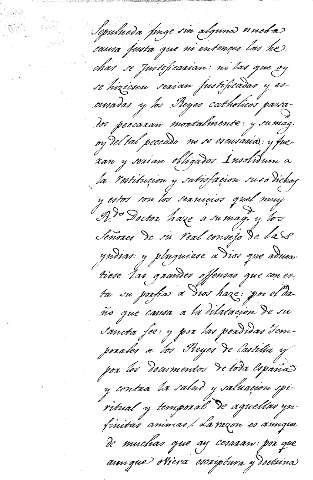 Sepulueda finge sin alguna nueba
causa justa que ni entonçes las he
chas se justificarian: ni las que oy
se hiziesen serian justificadas y es
cusadas y los Reyes catholicos pasa
dos pecaran mortalmente: y su magd
oy del tal peccado no se escusaria: y fue
ran y serian obligados Insolidum a
la restituçion y satisfaçion susodichas
y estos son los seruicios quel muy
Rdo Doctor haze a su magd y los
Señores de su real consejo de las
yndias: y pluguiese a dios que aduir
tiese las grandes offensas que con es
ta su porfia a dios haze: por el da
ño que causa a la dilataçion de su
sancta fee: y por las perdidas tem
porales a los Reyes de Castilla y
por los documentos de toda españa
y contra la salud y saluaçion spi
ritual y temporal de aquellas yn
finitas animas/. La razon es aunque
de muchas que ay cesaran: por que
aunque oviera escriptura y doctrina